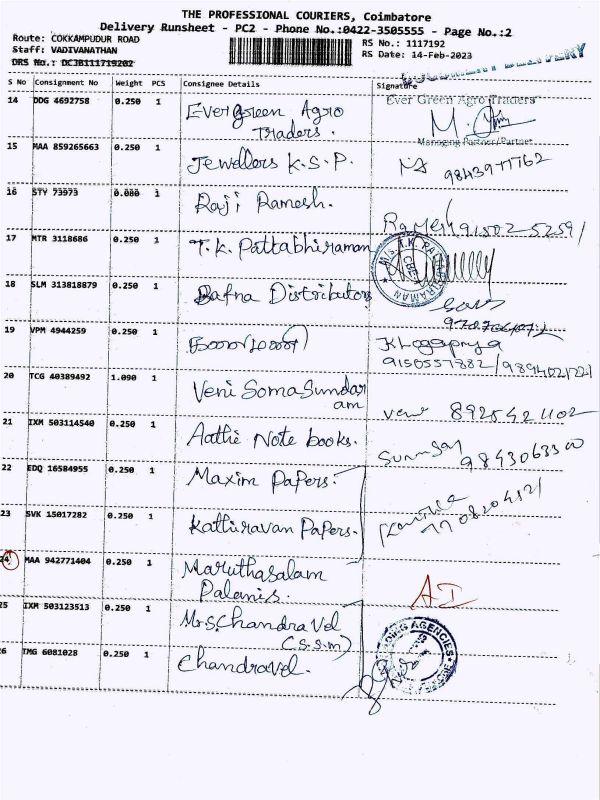 THE PROFESSIONAL COURIERS, Coimbatore
Delivery Runsheet - PC2 - Phone No.:0422-3505555 - Page No.:2
Route: COKKAMPUDUR ROAD
Staff: VADIVANATHAN
DRS No.: DCJB111719202
RS No.: 1117192
RS Date: 14-Feb-2023
DELIVERY
S No Consignment No Weight PCS Consignee Details Signature
14 DDG 4692758 0.250 1 Evergreen Agro Ever Green Agro Traders
Traders.
Managing Partner/Partner
15 MAA 859265663 0.250 1 Jewellers K.S.P.
16 STY 73973 0.080 1 Raji Ramesh.
Ramesh 9150252591
17 MTR 3118686 0.250 1 T.K. Pattabhiraman
18 SLM 313818879 0.250 1 Bafna Distributors
19 VPM 4944259 0.250 1
9150557882/
20 TCG 40389492 1.090 1 Veni SomaSundar
am 8925421102
21 IXM 503114540 0.250 1 Aathi Note books.
9843063500
22 EDQ 16584955 0.250 1 Maxim Papers.
23 SVK 15017282 0.250 1 Kathiravan Papers.
24 MAA 942771404 0.250 1 Maruthasalam
Palanis. AI
25 IXM 503123513 0.250 1 Mrs.Chandra Vel
(S.S.m)
26 TMG 6081028 0.250 1 Chandravel.